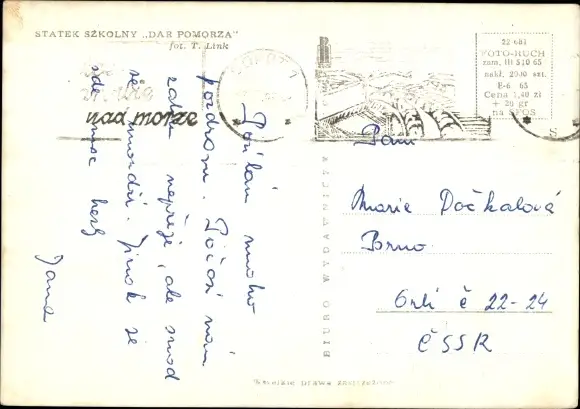 STATEK SZKOLNY „DAR POMORZA"
fot. T. Link
nad morze
22 681
FOTO-RUCH
zam. III 510 65
nakł. 20.10 szt.
E-6 65
Cena 1,40 zł
+ 20 gr
na SFOS
BIURO WYDAWNICZE
Posílám mnoho
pozdravů. Počasí nám
zatím nepřeje, ale snad
se umoudří. Jinak je
zde moc hezky
Jana
Paní
Marie Dočkalová
Brno
Orlí č 22-24
ČSSR
Wszelkie prawa zastrzeżone